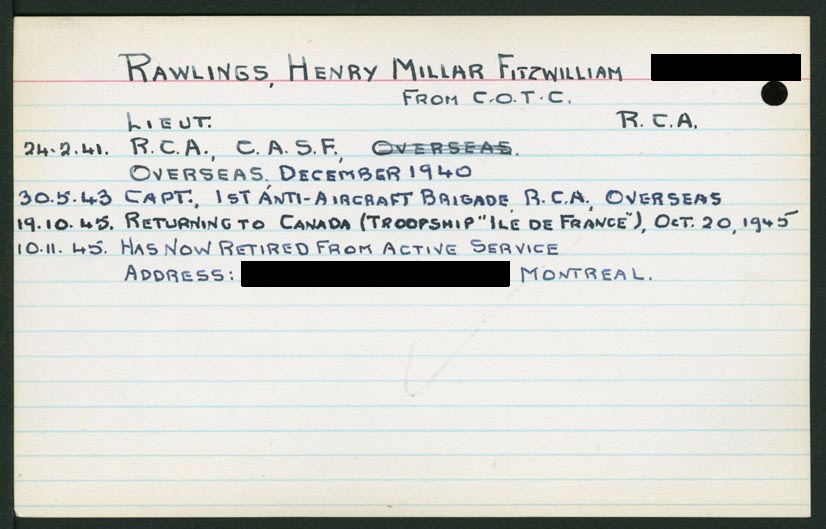 RAWLINGS, HENRY MILLAR FITZWILLIAM
FROM C.O.T.C.
LIEUT. R.C.A.
24.2.41. R.C.A., C.A.S.F., OVERSEAS.
OVERSEAS, DECEMBER 1940
30.5.43 CAPT., 1ST ANTI-AIRCRAFT BRIGADE, R.C.A., OVERSEAS
19.10.45. RETURNING TO CANADA (TROOPSHIP "ILE DE FRANCE"), OCT. 20, 1945
10.11.45. HAS NOW RETIRED FROM ACTIVE SERVICE
ADDRESS: MONTREAL.